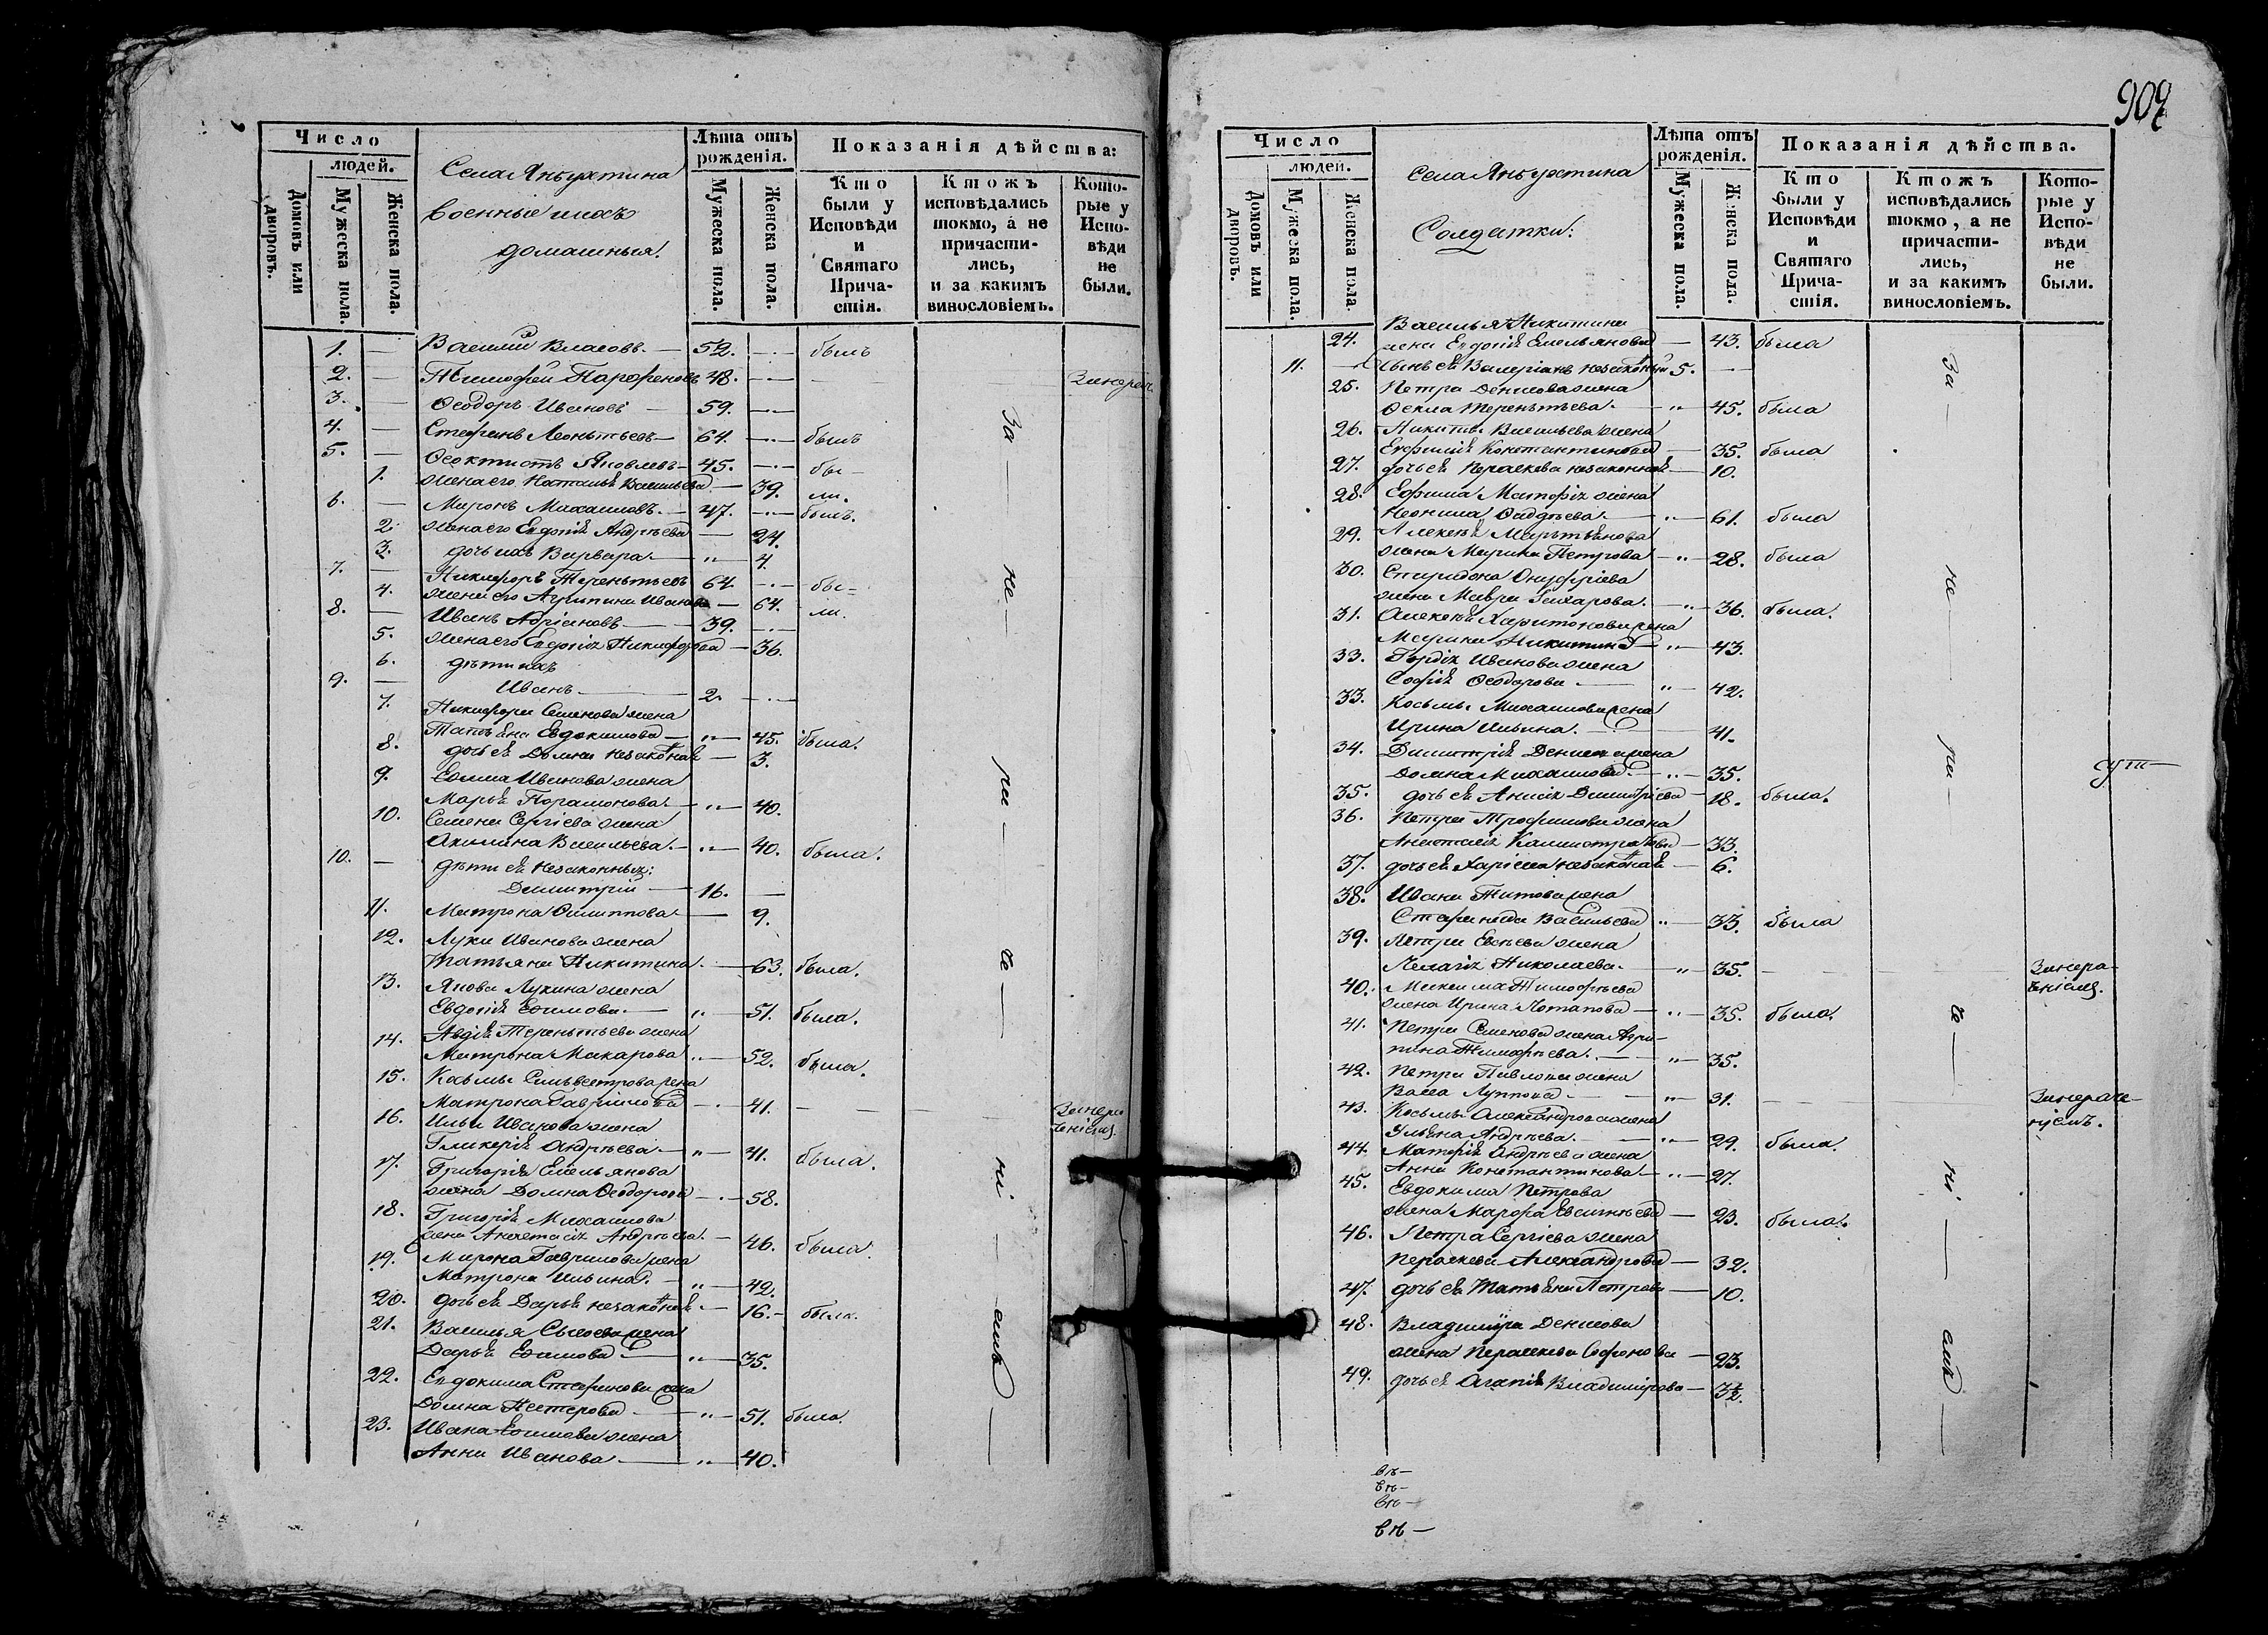 Число
людей.
Домовъ или дворовъ.
Мужеска пола.
Женска пола.
Села Янгуятина
Военные и ихъ
домашныя.
Лѣта отъ рожденія.
Мужеска пола.
Женска пола.
Показанія дѣйства:
Кто были у Исповѣди и Святаго Причастія.
Ктожъ исповѣдались токмо, а не причастились, и за какимъ винословіемъ.
Которые у Исповѣди не были.
1. — Василій Власовъ. — 52. — былъ
2. — Тимофей Парфеновъ 48. —
3. — Ѳеодоръ Ивановъ — 59. —
4. — Стефанъ Леонтьевъ — 64. — былъ
5. — Ѳеоктистъ Яковлевъ — 45. — бы-
1. жена его Наталья Васильева — 39. ли.
6. — Миронъ Михаиловъ. — 47. — былъ.
2. жена его Евдокія Андрѣева — 24.
3. дочь ихъ Варвара — " 4.
7. — Никифоръ Терентьевъ 64. — бы=
4. жена его Агрипина Иванова — 64. ли.
8. — Иванъ Адріановъ — 39. —
5. жена его Евдокія Никифорова — 36.
6. дѣти ихъ
9. — Иванъ — 2. —
7. Никифора Семенова жена
Татьяна Евдокимова — " — 45. была.
8. дочь ея Домна незаконная — 3.
9. Ефима Иванова жена
Марья Парамонова — " — 40.
10. Семена Сергіева жена
Акилина Васильева. — 40. была.
10. — дѣти ея незаконныя:
Димитрій — 16. —
11. Матрона Филиппова — 9.
12. Луки Иванова жена
Татьяна Никитина. — 63. была.
13. Якова Лукина жена
Евдокія Ефимова. — " — 51. была.
14. Авдія Терентьева жена
Матрона Макарова — 52. была.
15. Козьмы Сильвестрова жена
Матрона Гавріилова — 41. — —
16. Ильи Иванова жена
Гликерія Андрѣева. — " — 41. была.
17. Григорія Емельянова
жена Домна Ѳеодорова — 58.
18. Григорія Михаилова
жена Анастасія Андрѣева. — 46. была.
19. Мирона Гаврилова жена
Матрона Ильина. — " — 42.
20. дочь ея Дарья незаконная — 16. — была.
21. Василья Сысоева жена
Дарья Ефимова — " — 35.
22. Евдокима Стефанова жена
Домна Нестерова — " — 51. была.
23. Ивана Ефимова жена
Анна Иванова — " — 40.
За — не — ра — че — ні — емъ —
902
Число
людей.
Домовъ или дворовъ.
Мужеска пола.
Женска пола.
Села Янгуятина
Солдатки:
Лѣта отъ рожденія.
Мужеска пола.
Женска пола.
Показанія дѣйства.
Кто были у Исповѣди и Святаго Причастія.
Ктожъ исповѣдались токмо, а не причастились, и за какимъ винословіемъ.
Которые у Исповѣди не были.
24. Василья Никитина
жена Евдокія Емельянова — 43. была
11. — сынъ ея Валеріанъ незаконный 5. —
25. Петра Денисова жена
Ѳекла Терентьева. — " — 45. была
26. Никиты Васильева жена
Евфимія Константинова — 35. была
27. дочь ея Параскева незаконная — 10.
28. Ефима Матфія жена
Неонила Фаддѣева — " — 61. была
29. Алексѣя Мартьянова
жена Марина Петрова — " — 28. была
30. Спиридона Онуфріева
жена Мавра Захарова. — " — 36. была.
31. Алексѣя Харитонова жена
Марина Никитина — " — 43.
33. Гордія Иванова жена
Софія Ѳеодорова. — " — 42.
33. Козьмы Михаилова жена
Ирина Ильина. — 41.
34. Димитрія Денисова жена
Домна Михаилова. — " — 35.
35. дочь ея Анисія Димитріева — 18. была.
36. Петра Трофимова жена
Анастасія Каллистратова — 33.
37. дочь ея Харіесса незаконная — 6.
38. Ивана Титова жена
Стефанида Васильева " — 33. была
39. Петра Евсѣева жена
Пелагія Николаева. — " — 35. — —
40. Максима Тимофѣева
жена Ирина Потапова — " — 35. была.
41. Петра Семенова жена Агри-
пина Тимофѣева. — " — 35.
42. Петра Павлова жена
Васса Луппова — " — 31. —
43. Козьмы Александрова жена
Ульяна Андрѣева. — " — 29. была.
44. Матфія Андрѣева жена
Анна Константинова — " — 27.
45. Евдокима Петрова
жена Марфа Евсигнѣева — 23. была.
46. Петра Сергіева жена
Параскева Александрова — 32.
47. дочь ея Татьяна Петрова — 10.
48. Владиміра Денисова
жена Параскева Софонова — 23.
49. дочь ея Агапія Владимірова — 3½.
За — не — ра — че — ні — емъ —